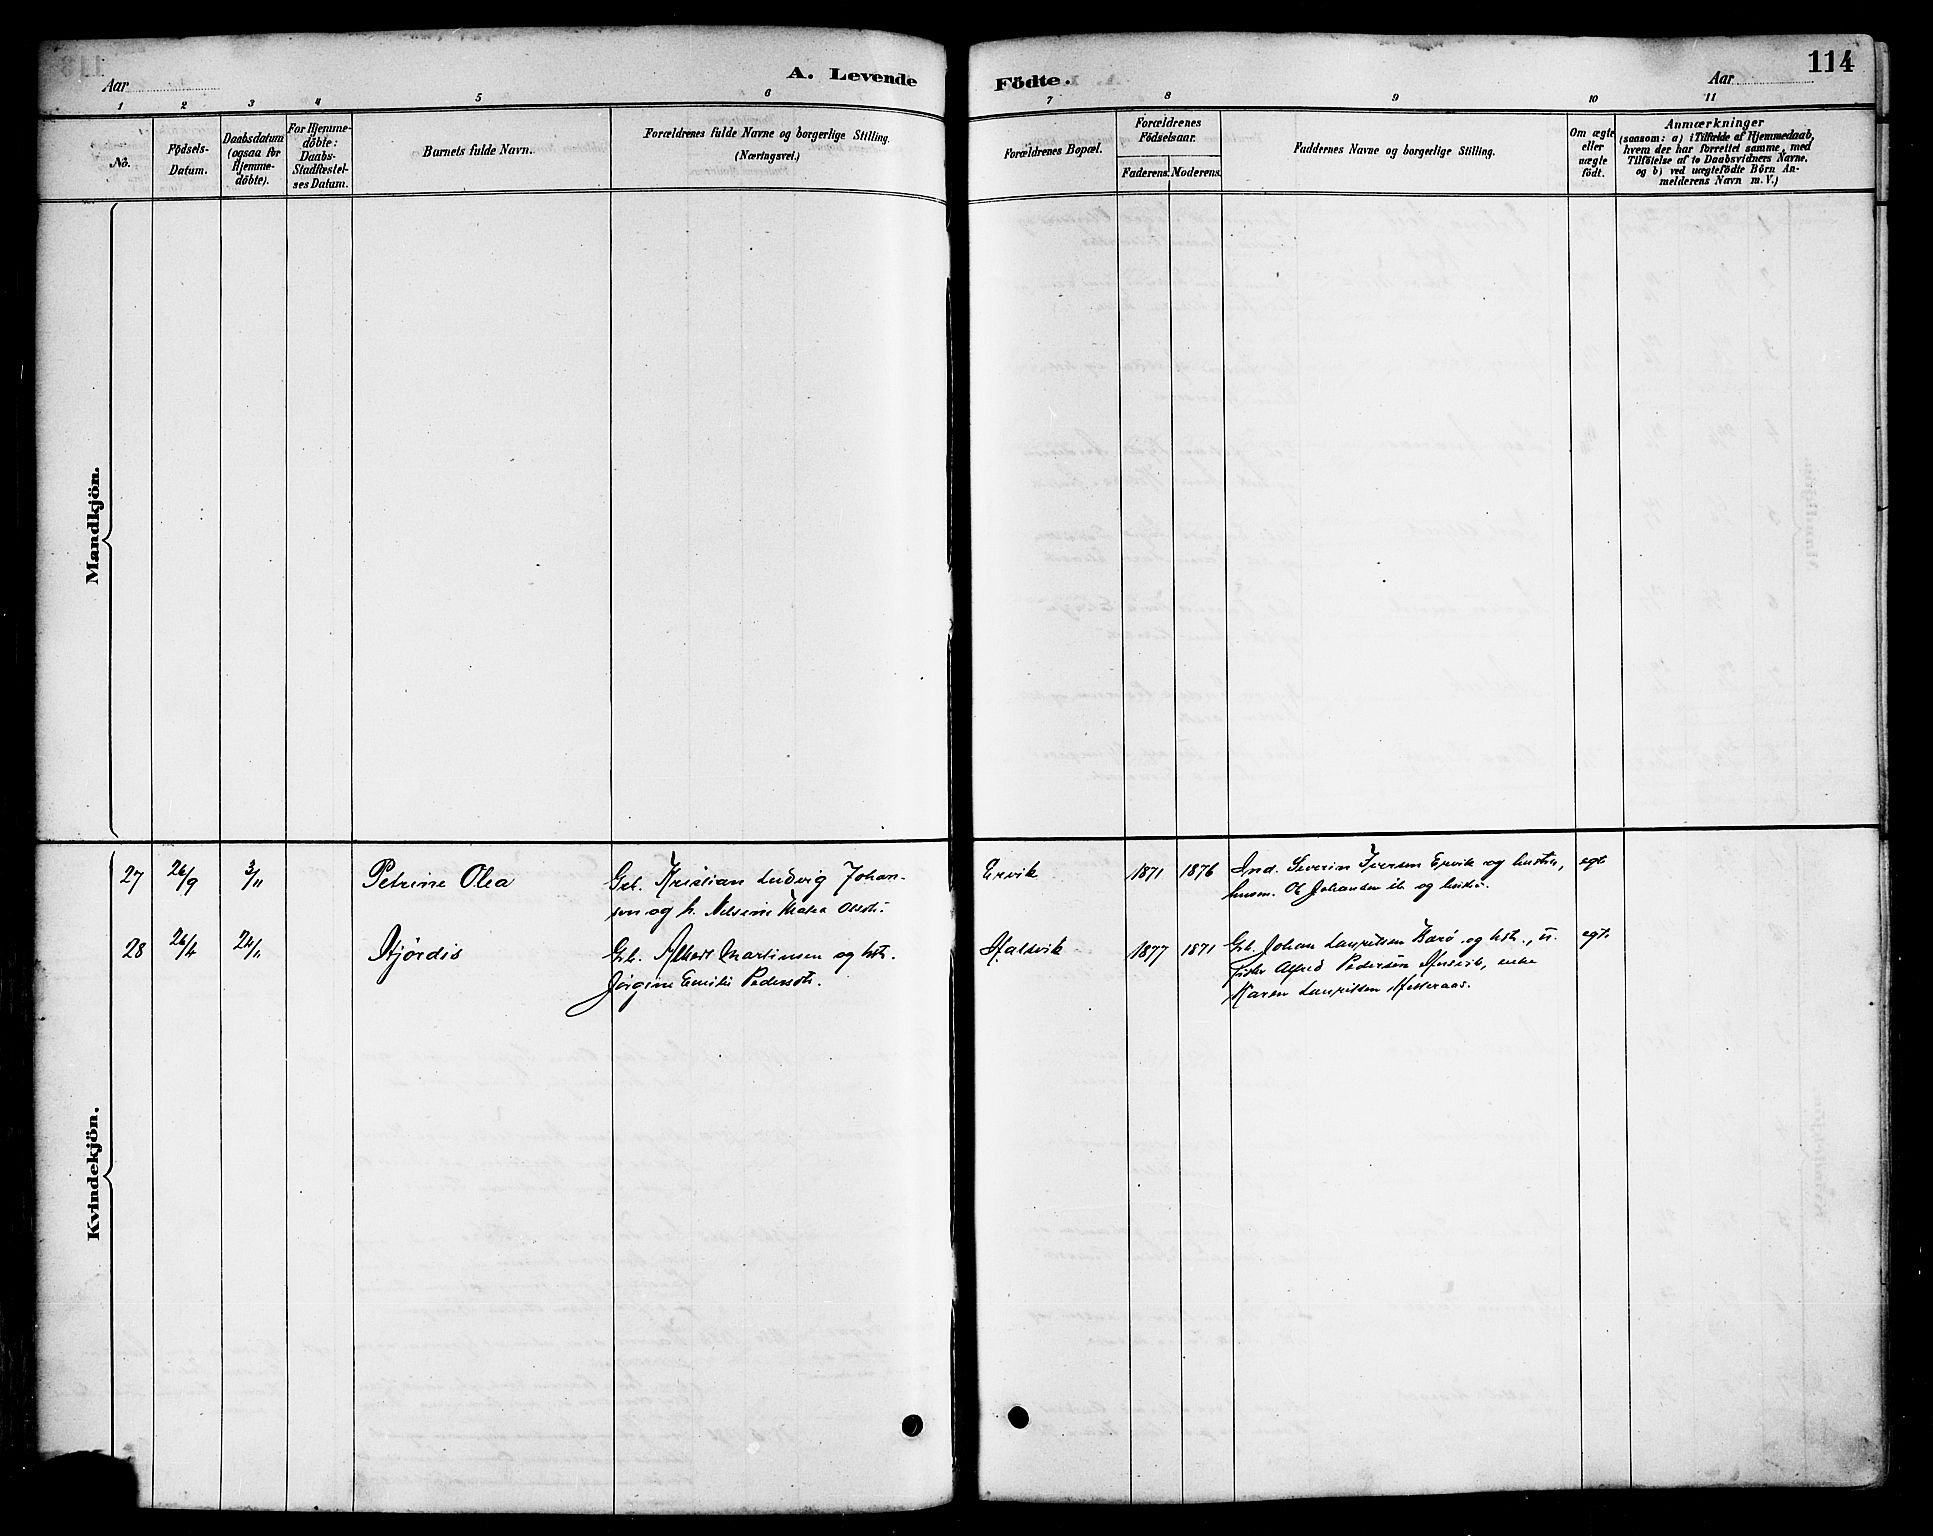 114
Aar
A. Levende
Födte.
Aar
1
2
3
4
5
6
7
8
9
10
11
No.
Fødsels-
Datum.
Daabsdatum
(ogsaa for
Hjemme-
döbte).
For Hjemme-
döbte:
Daabs-
Stadfæstel-
ses Datum.
Barnets fulde Navn.
Forældrenes fulde Navne og borgerlige Stilling.
(Næringsvei.)
Forældrenes Bopæl.
Forældrenes
Födselsaar.
Faderens.
Moderens.
Faddernes Navne og borgerlige Stilling.
Om ægte
eller
uægte
födt.
Anmærkninger
(saasom: a) i Tilfælde af Hjemmedaab,
hvem der har forrettet samme, med
Tilföielse af to Daabsvidners Navne,
og b) ved uægtefödte Börn An-
melderens Navn m. V.)
Mandkjön.
Kvindekjön.
27 26/9 3/11 Petrine Olea Gbr. Kristian Ludvig Johan-
sen og h. Nelsine Olsdt.
Ervik 1871 1876 Ind. Severin Iversen Ervik og hustru,
husm. Ol Johansen ib. og hustru.
egt
28 26/4 24/11 Hjördis Gbr. Albert Martinsen og hst.
Jörgine Emilie Pedersdt.
Halsvik 1877 1871 Gbr. Johan Lauritsen Barö og hst., u.
fisker Alfred Pedersen, enke
Karen Lauritsen Hesteraas.
egt.